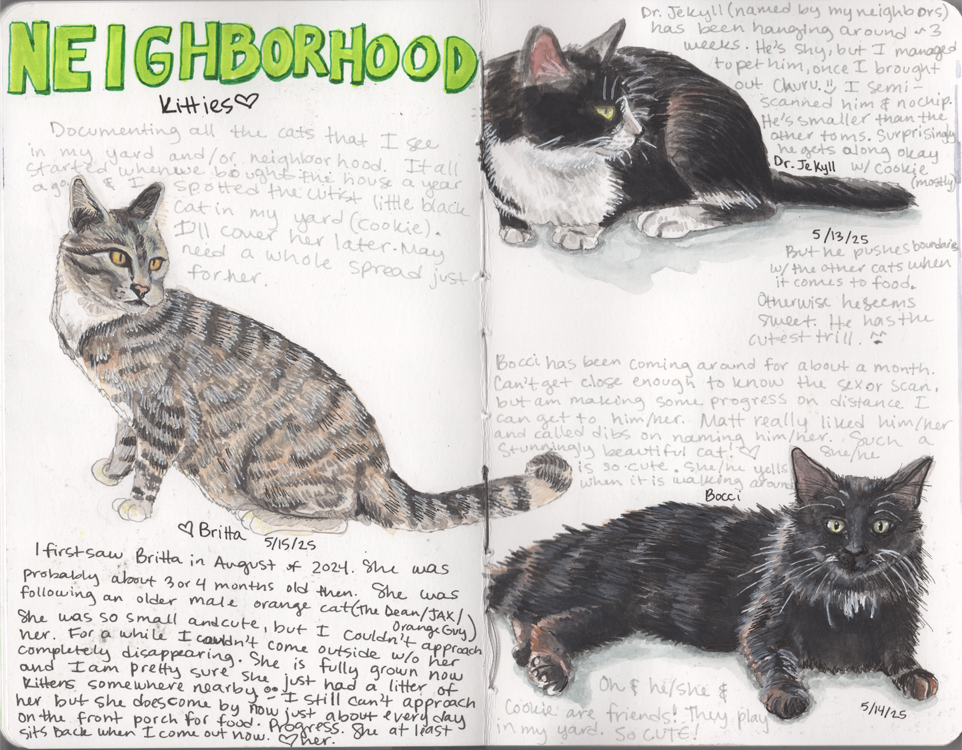 NEIGHBORHOOD
Kitties♡
Documenting all the cats that I see
in my yard and/or neighborhood. It all
started when we bought the house a year
ago & I spotted the cutest little black
cat in my yard (Cookie).
I'll cover her later. May
need a whole spread just
for her.
♡Britta 5/15/25
I first saw Britta in August of 2024. She was
probably about 3 or 4 months old then. She was
following an older male orange cat (The Dean/JAX/
Orange Guy)
She was so small and cute, but I couldn't approach
her. For a while I couldn't come outside w/o her
completely disappearing. She is fully grown now
and I am pretty sure she just had a litter of
kittens somewhere nearby I still can't approach
her but she does come by now just about everyday
on the front porch for food. Progress. She at least
sits back when I come out now. ♡her.
Dr. Jekyll (named by my neighbors)
has been hanging around ~3
weeks. He's shy, but I managed
to pet him, once I brought
out Churu. I semi-
scanned him & no chip.
He's smaller than the
other toms. Surprisingly
he gets along okay
w/ Cookie
(mostly)
Dr. Jekyll
5/13/25
But he pushes boundaries
w/ the other cats when
it comes to food.
Otherwise he seems
sweet. He has the
cutest trill. ^^
Bocci has been coming around for about a month.
Can't get close enough to know the sex or scan,
but am making some progress on distance I
can get to him/her. Matt really liked him/her
and called dibs on naming him/her. Such a
stunningly beautiful cat! ♡ She/he
is so cute. She/he yells
when it is walking around
Bocci
Oh & he/she &
Cookie are friends! They play
in my yard. So CUTE!
5/14/25